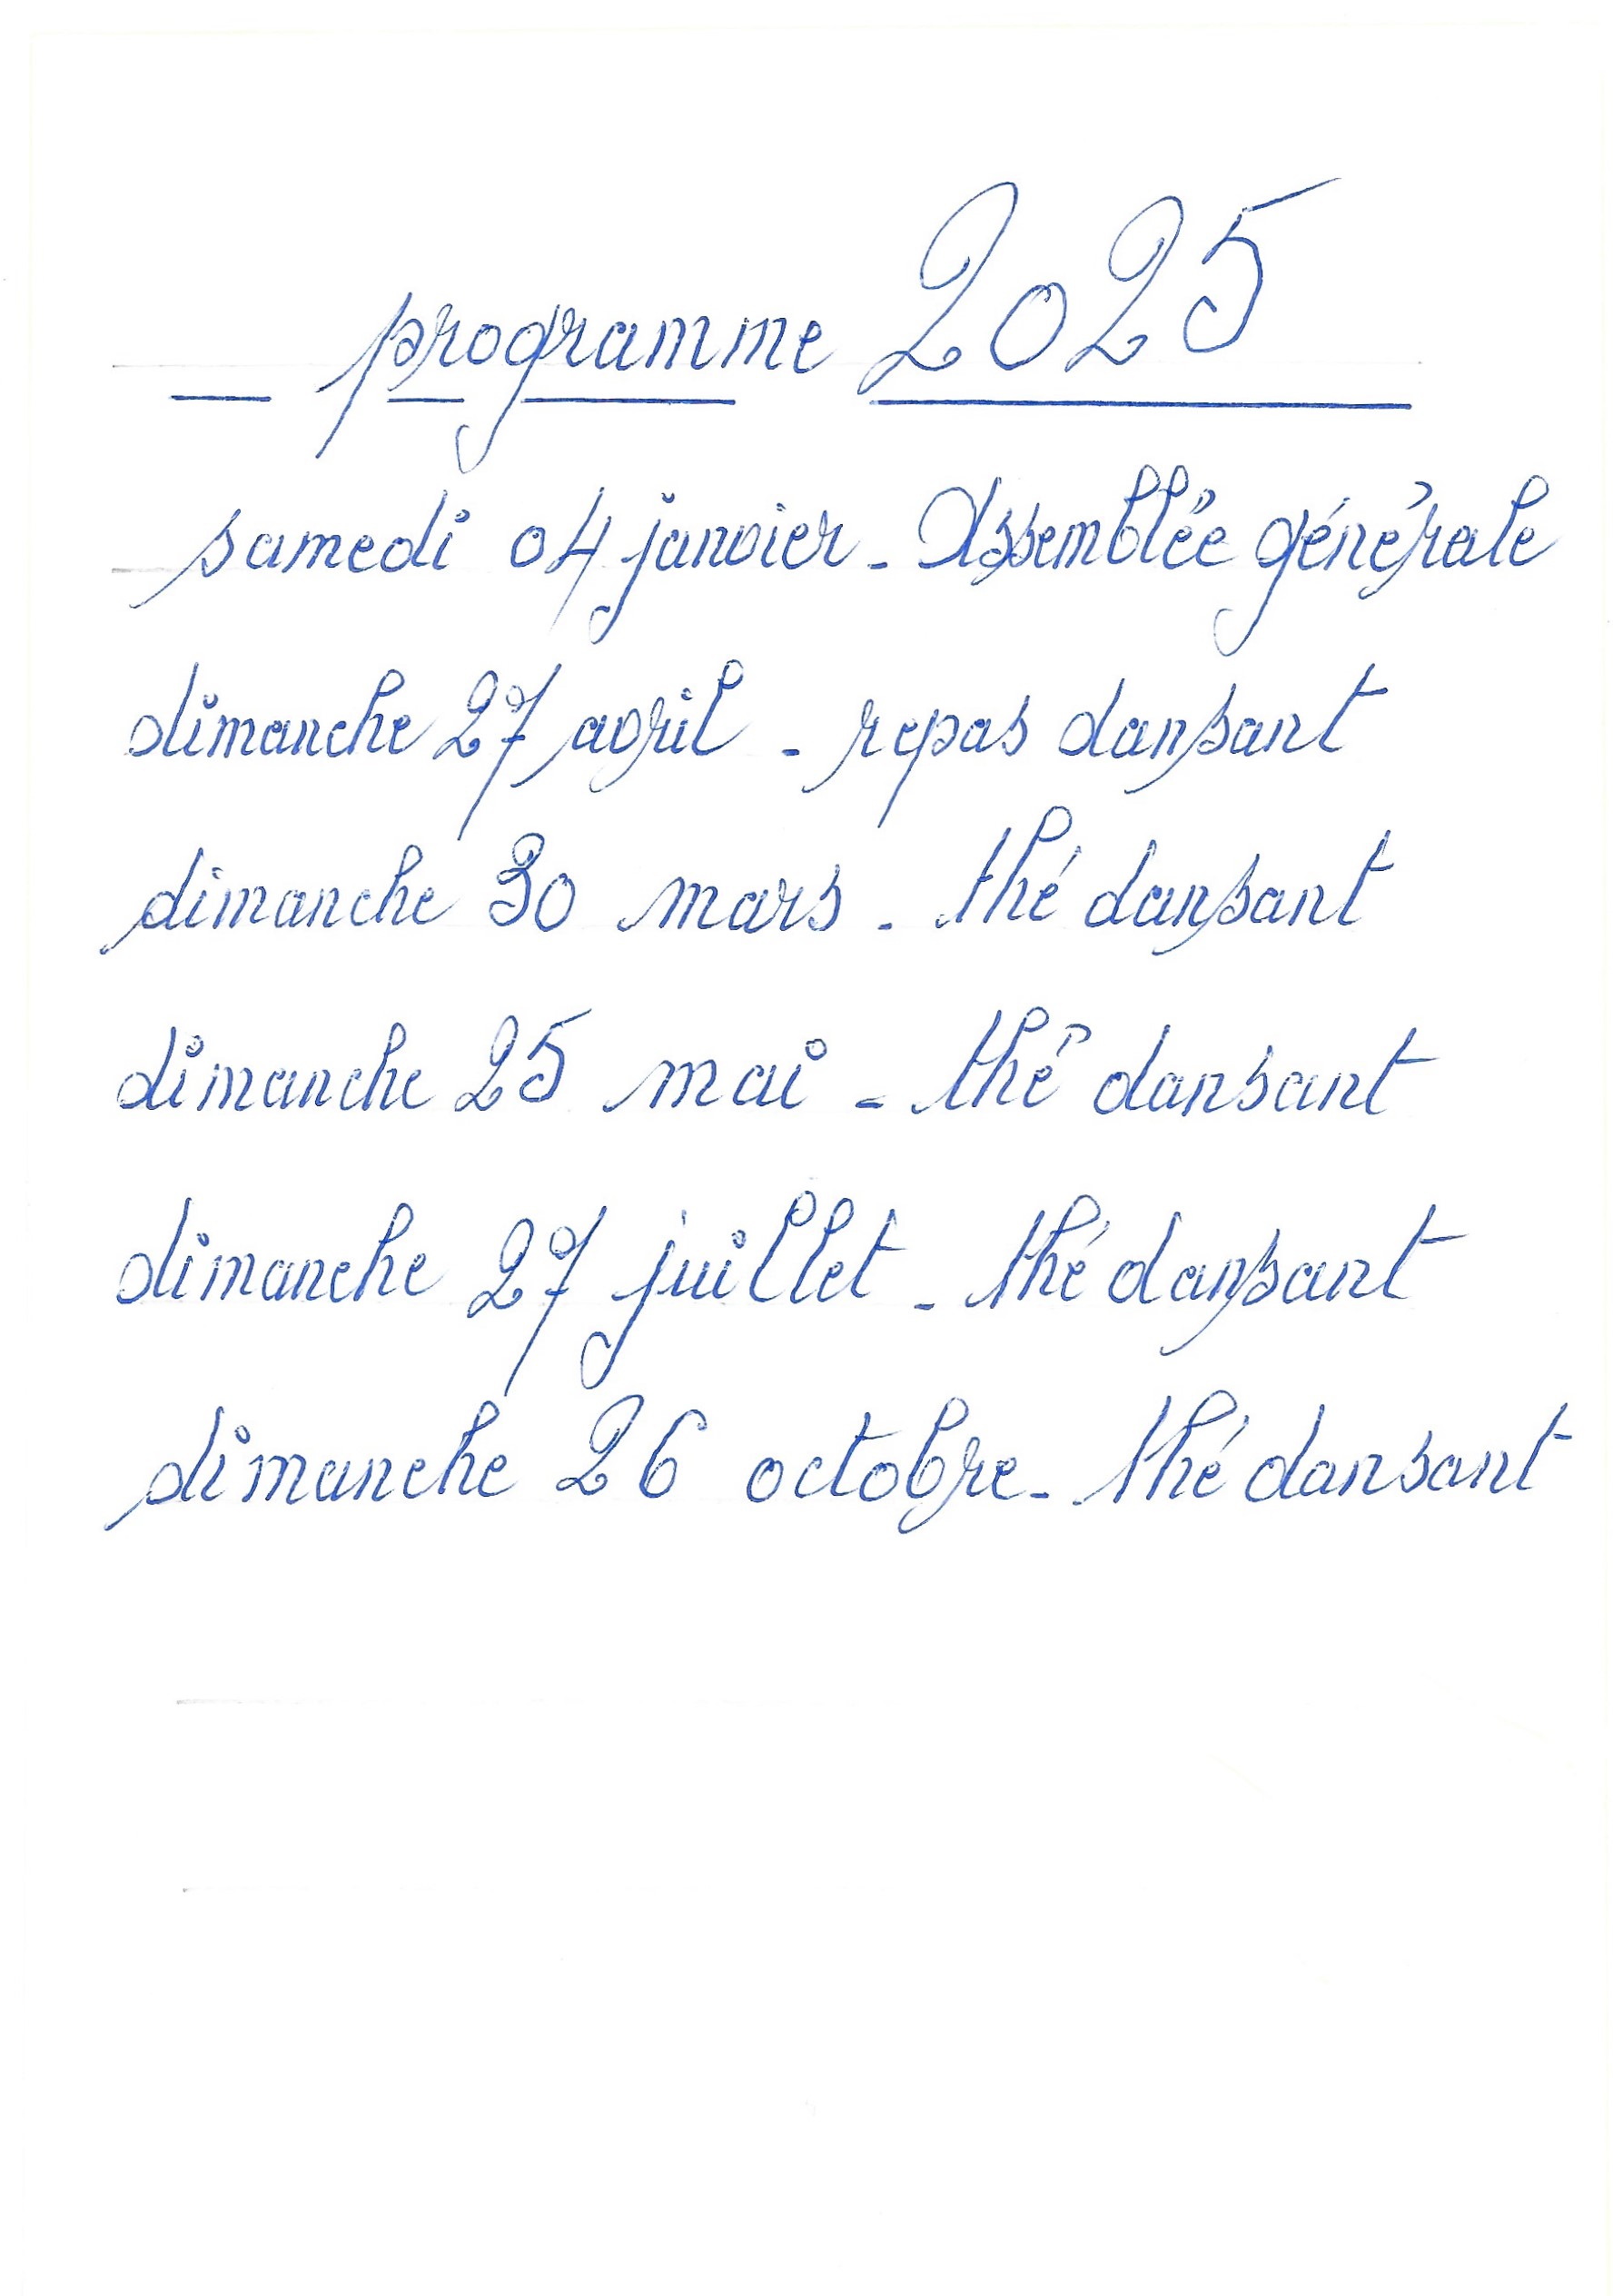 programme 2025
samedi 04 janvier - Assemblée générale
dimanche 27 avril - repas dansant
dimanche 30 mars - thé dansant
dimanche 25 mai - thé dansant
dimanche 27 juillet - thé dansant
dimanche 26 octobre - thé dansant